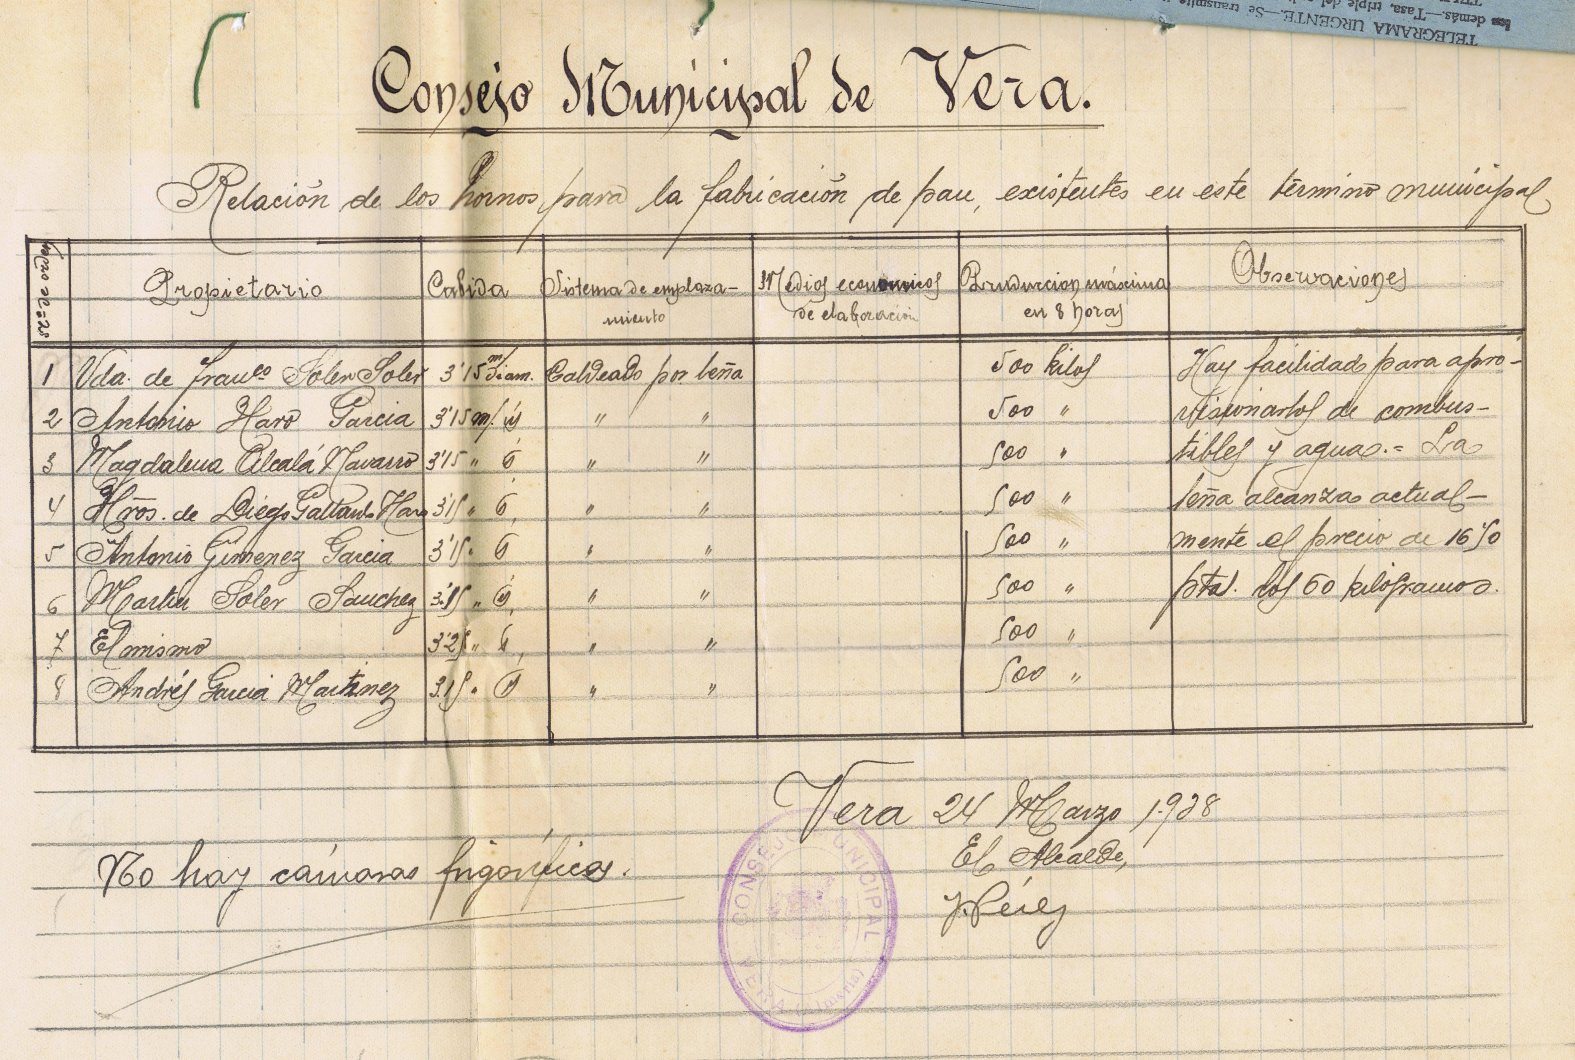 TELEGRAMA URGENTE.—Se transmite
los demás.—Tasa, triple del
Consejo Municipal de Vera.
Relación de los hornos para la fabricación de pan, existentes en este término municipal
Propietario Cabida Sistema de emplaza- Medios economicos Producción máxima Observaciones
miento de elaboración en 8 horas
1 Vda. de Franco Soler Soler 3'15 m/ diam. Caldeado por leña 500 kilos Hay facilidad para apro-
2 Antonio Haro Garcia 3'15 m/. id " " 500 " visionarlos de combus-
3 Magdalena Alcalá Navarro 3'15 " id " " 500 " tibles y agua.= La
4 Hros. de Diego Gallardo Haro 3'15 " id, " " 500 " leña alcanza actual-
5 Antonio Gimenez Garcia 3'15 " id " " 500 " mente el precio de 16'50
6 Martin Soler Sanchez 3'15 " id, " " 500 " ptas. los 60 kilogramos.
7 El mismo 3'25 " id, " " 500 "
8 Andrés Garcia Martinez 3'15 " id " " 500 "
Vera 24 Marzo 1.938
El Alcalde,
No hay cámaras frigoríficas.
Pérez
CONSEJO MUNICIPAL
VERA (Almería)